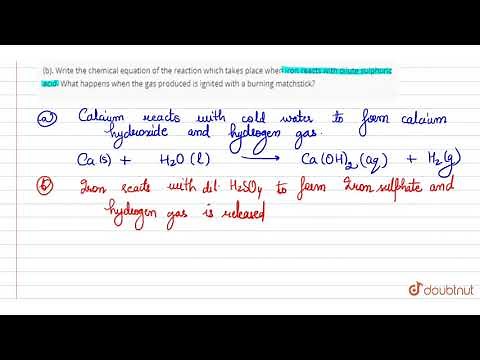 (b). Write the chemical equation of the reaction which takes place when iron reacts with dilute sulphuric
acid. What happens when the gas produced is ignited with a burning matchstick?
(a) Calcium reacts with cold water to form calcium
hydroxide and hydrogen gas.
Ca(s) + H₂O (l) → Ca(OH)₂(aq) + H₂(g)
(b) Iron reacts with dil. H₂SO₄ to form Iron sulphate and
hydrogen gas is released
doubtnut